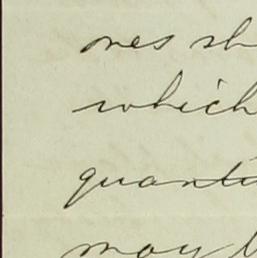 ones sh
which
quanti
may b